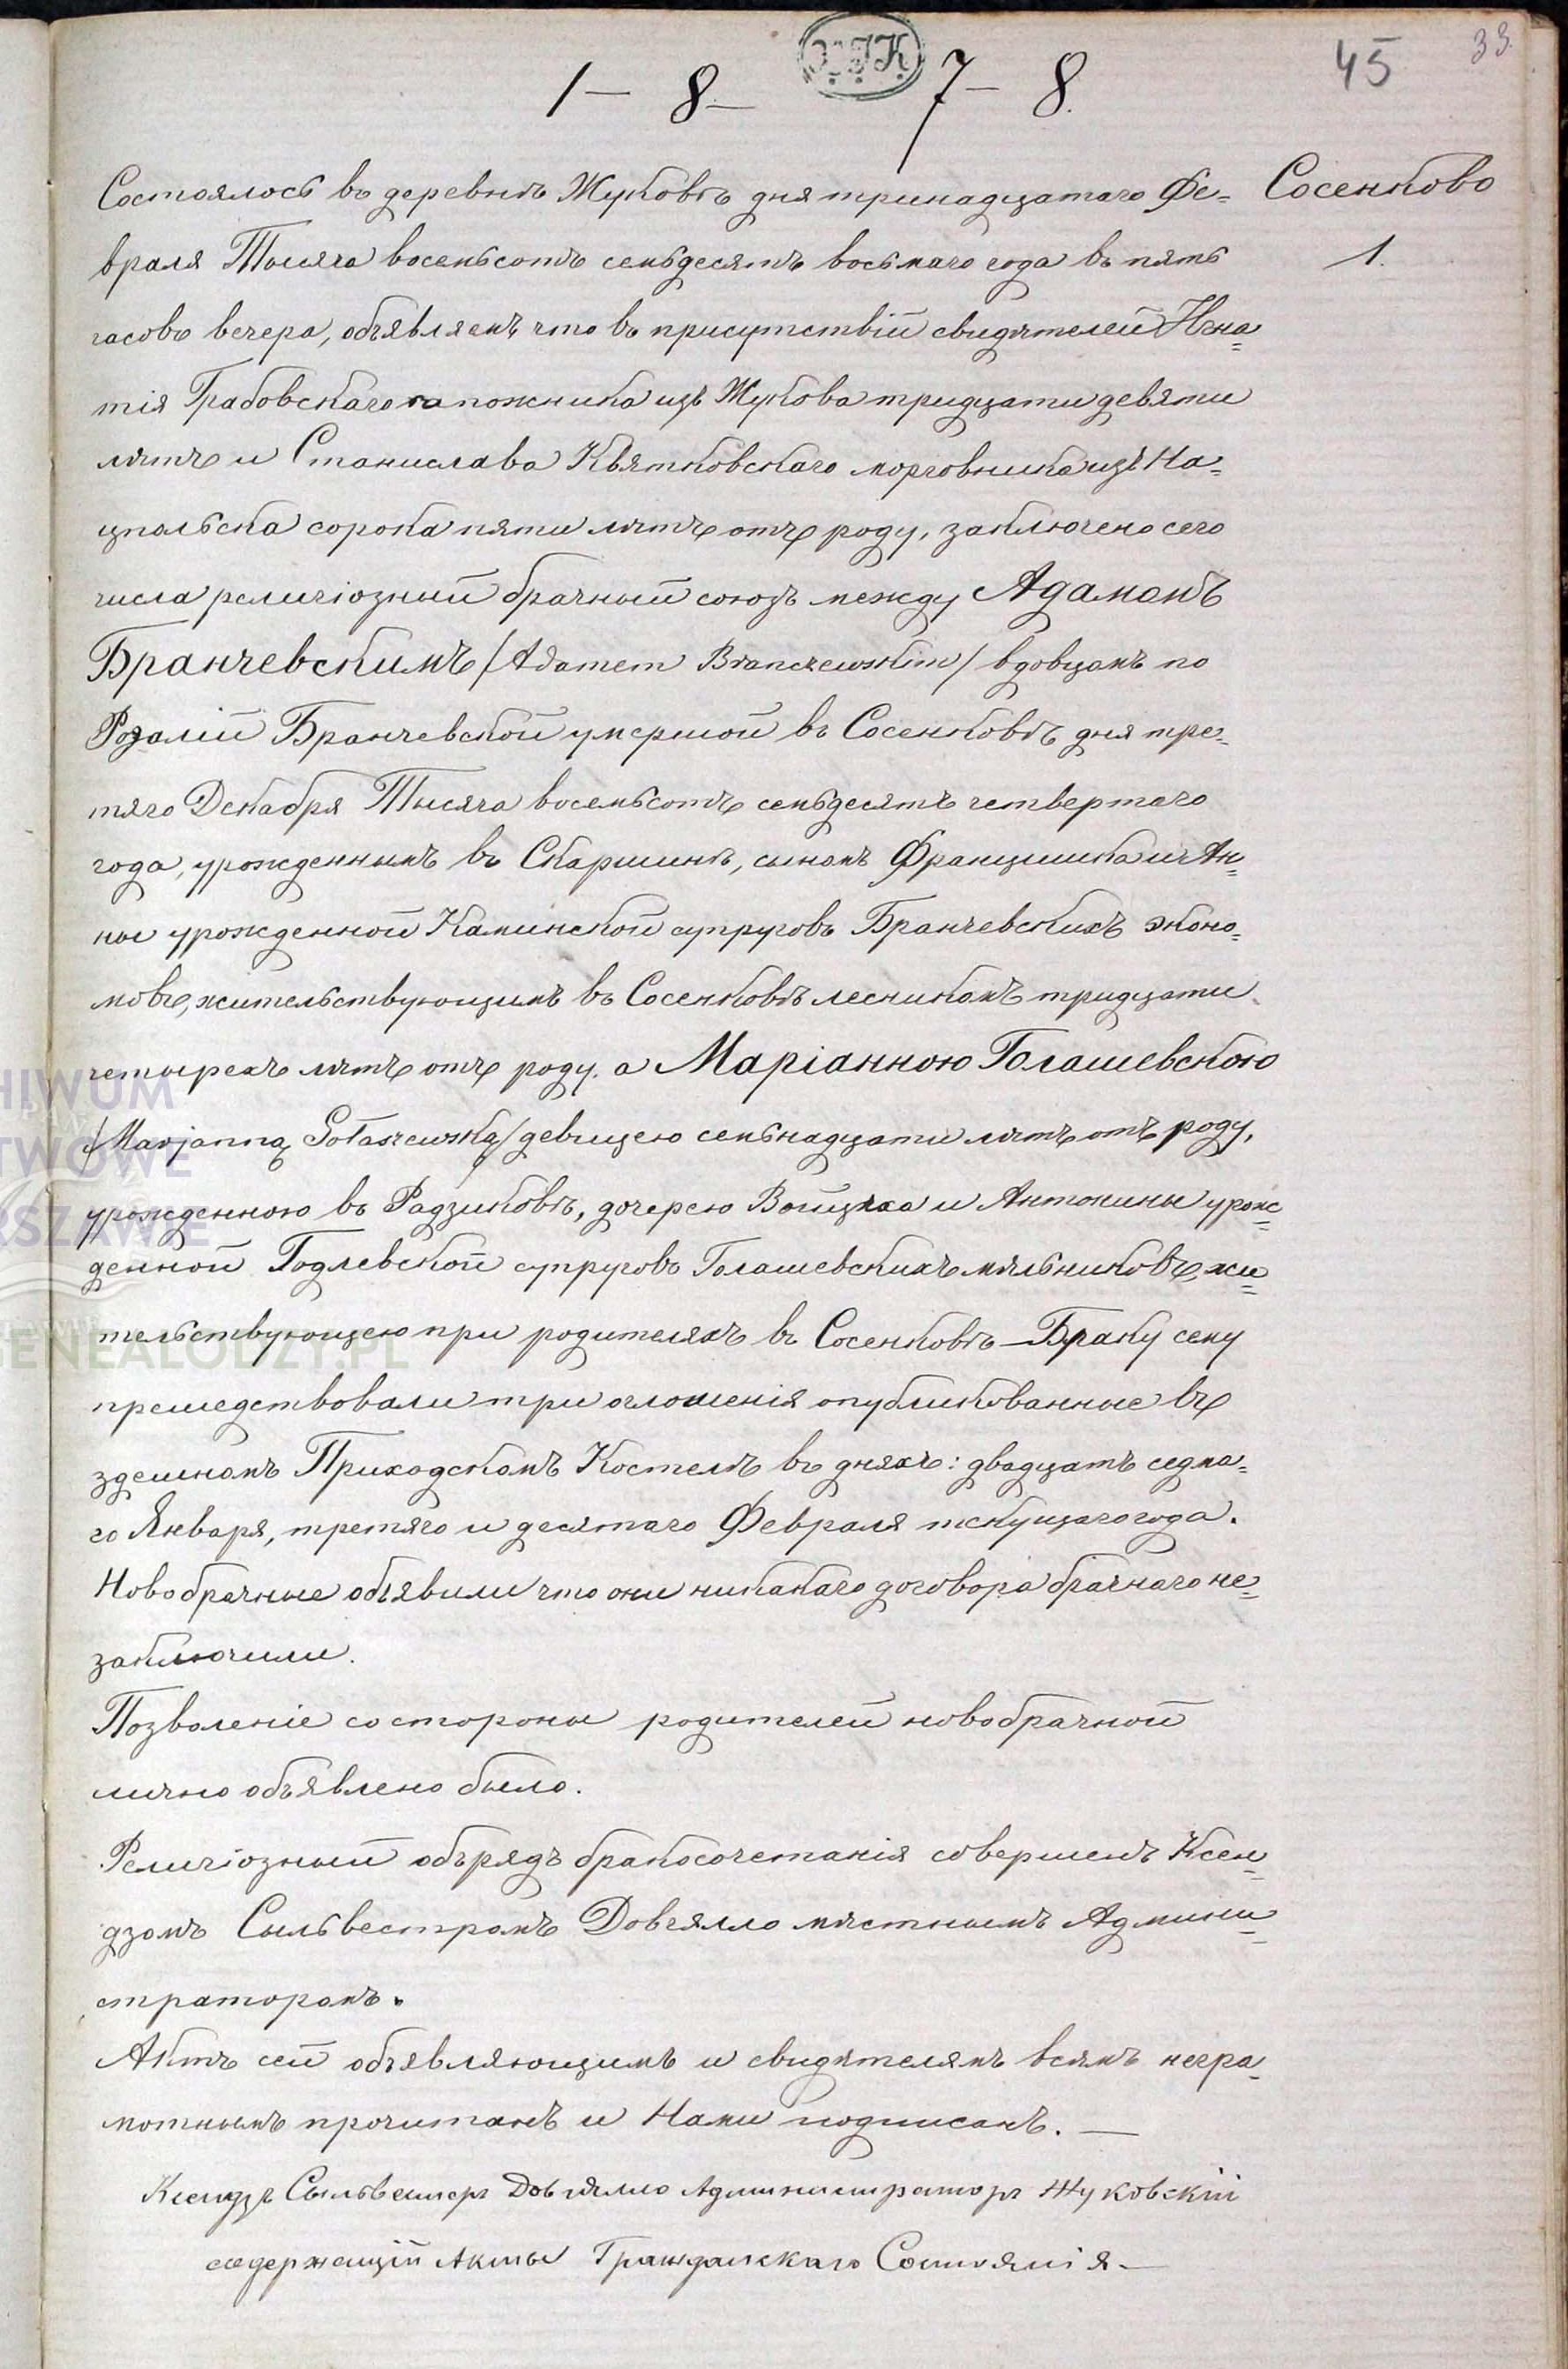 45 33
1 – 8 – 7 – 8.
Состоялось въ деревнѣ Жуковѣ дня тринадцатаго Фе= Сосенково
враля Тысяча восемьсотъ семьдесятъ восьмаго года въ пять 1.
часовъ вечера, объявляемъ что въ присутствіи свидѣтелей Игна=
тія Грабовскаго сапожника изъ Жукова тридцати девяти
лѣтъ и Станислава Квятковскаго морговника изъ На=
цпольска сорока пяти лѣтъ отъ роду, заключено сего
числа религіозный брачный союзъ между Адамомъ
Бранчевскимъ /Adamem Branczewskim/ вдовцемъ по
Розаліи Бранчевской умершой въ Сосенковѣ дня тре=
тяго Декабря Тысяча восемьсотъ семьдесятъ четвертаго
года, урожденнымъ въ Скаршинѣ, сыномъ Францишка и Ан=
ны урожденной Каминской супруговъ Бранчевскихъ эконо=
мовъ, жительствующимъ въ Сосенковѣ лесникомъ тридцати
четырехъ лѣтъ отъ роду. а Маріанною Голашевскою
/Marjanną Gołaszewską/ девицею семьнадцати лѣтъ отъ роду,
урожденною въ Радзиковѣ, дочерею Войцѣха и Антонины урож=
денной Годлевской супруговъ Голашевскихъ мѣльниковъ, жи=
тельствующею при родителяхъ въ Сосенковѣ – Браку сему
прешедствовали три оглошенія опубликованные въ
здешномъ Приходскомъ Костелѣ въ дняхъ: двадцатъ седма=
го Января, третяго и десятаго Февраля текущаго года.
Новобрачные объявили что они никакаго договора брачнаго не=
заключили.
Позволеніе со стороны родителей новобрачной
лично объявлено было.
Религіозный обърядъ бракосочетанія совершенъ Ксен=
дзомъ Сыльвестромъ Довгялло мѣстнымъ Админи=
страторомъ.
Актъ сей объявляющимъ и свидѣтелямъ всѣмъ негра=
мотнымъ прочитанъ и Нами подписанъ. —
Ксендзъ Сыльвестеръ Довгялло Администраторъ Жуковскій
содержащій Акты Гражданскаго Состоянія —